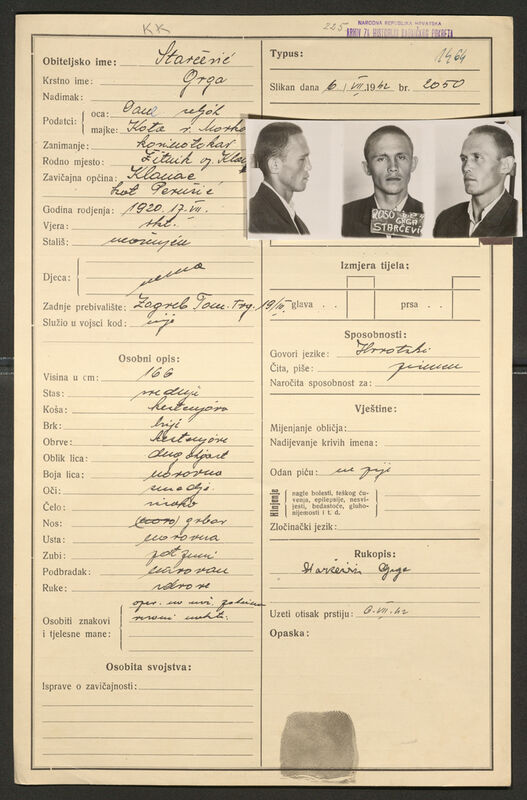 KK
225
NARODNA REPUBLIKA HRVATSKA
ARHIV ZA HISTORIJU RADNIČKOG POKRETA
Obiteljsko ime: Starčević
Krstno ime: Grga
Nadimak:
Podatci: oca: Dane
majke: Kata r.
Zanimanje:
Rodno mjesto: Žitnik
Zavičajna općina: Klanac
kot Perušić
Godina rodjenja: 1920. 17. VII.
Vjera: rkt.
Stališ: neoženjen
Djeca: nema
Zadnje prebivalište: Zagreb Tom. Trg. 19/III
Služio u vojsci kod: nije
Osobni opis:
Visina u cm: 166
Stas: srednji
Koša: kestenjava
Brk: brije
Obrve: kestenjave
Oblik lica: dug.
Boja lica: naravna
Oči: smedje
Čelo: visoko
Nos: grbav
Usta: naravna
Zubi: potpuni
Podbradak: naravan
Ruke: zdrave
Osobiti znakovi
i tjelesne mane:
Osobita svojstva:
Isprave o zavičajnosti:
Typus: 1464
Slikan dana 6/VII. 1942 br. 2050
2050
GRGA
STARČEVI
Izmjera tijela:
glava . . prsa . .
Sposobnosti:
Govori jezike: Hrvatski
Čita, piše: pismen
Naročita sposobnost za:
Vještine:
Mijenjanje obličja:
Nadijevanje krivih imena:
Odan piću: ne pije
Hinjenje
nagle bolesti, teškog ću-
venja, epilepsije, nesvi-
jesti, bedastoće, gluho-
nijemosti i t. d.
Zločinački jezik:
Rukopis:
Starčević Grga
Uzeti otisak prstiju: 6. VII. 42
Opaska: